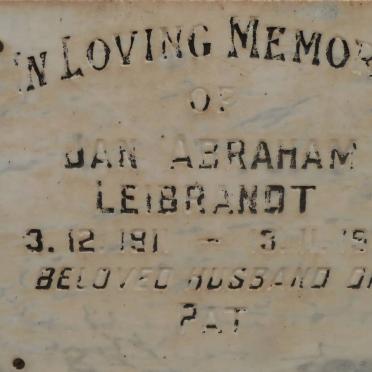 IN LOVING MEMOR
OF
JAN ABRAHAM
LEIBRANDT
3.12.191 - 3.11.19
BELOVED HUSBAND OF
PAT